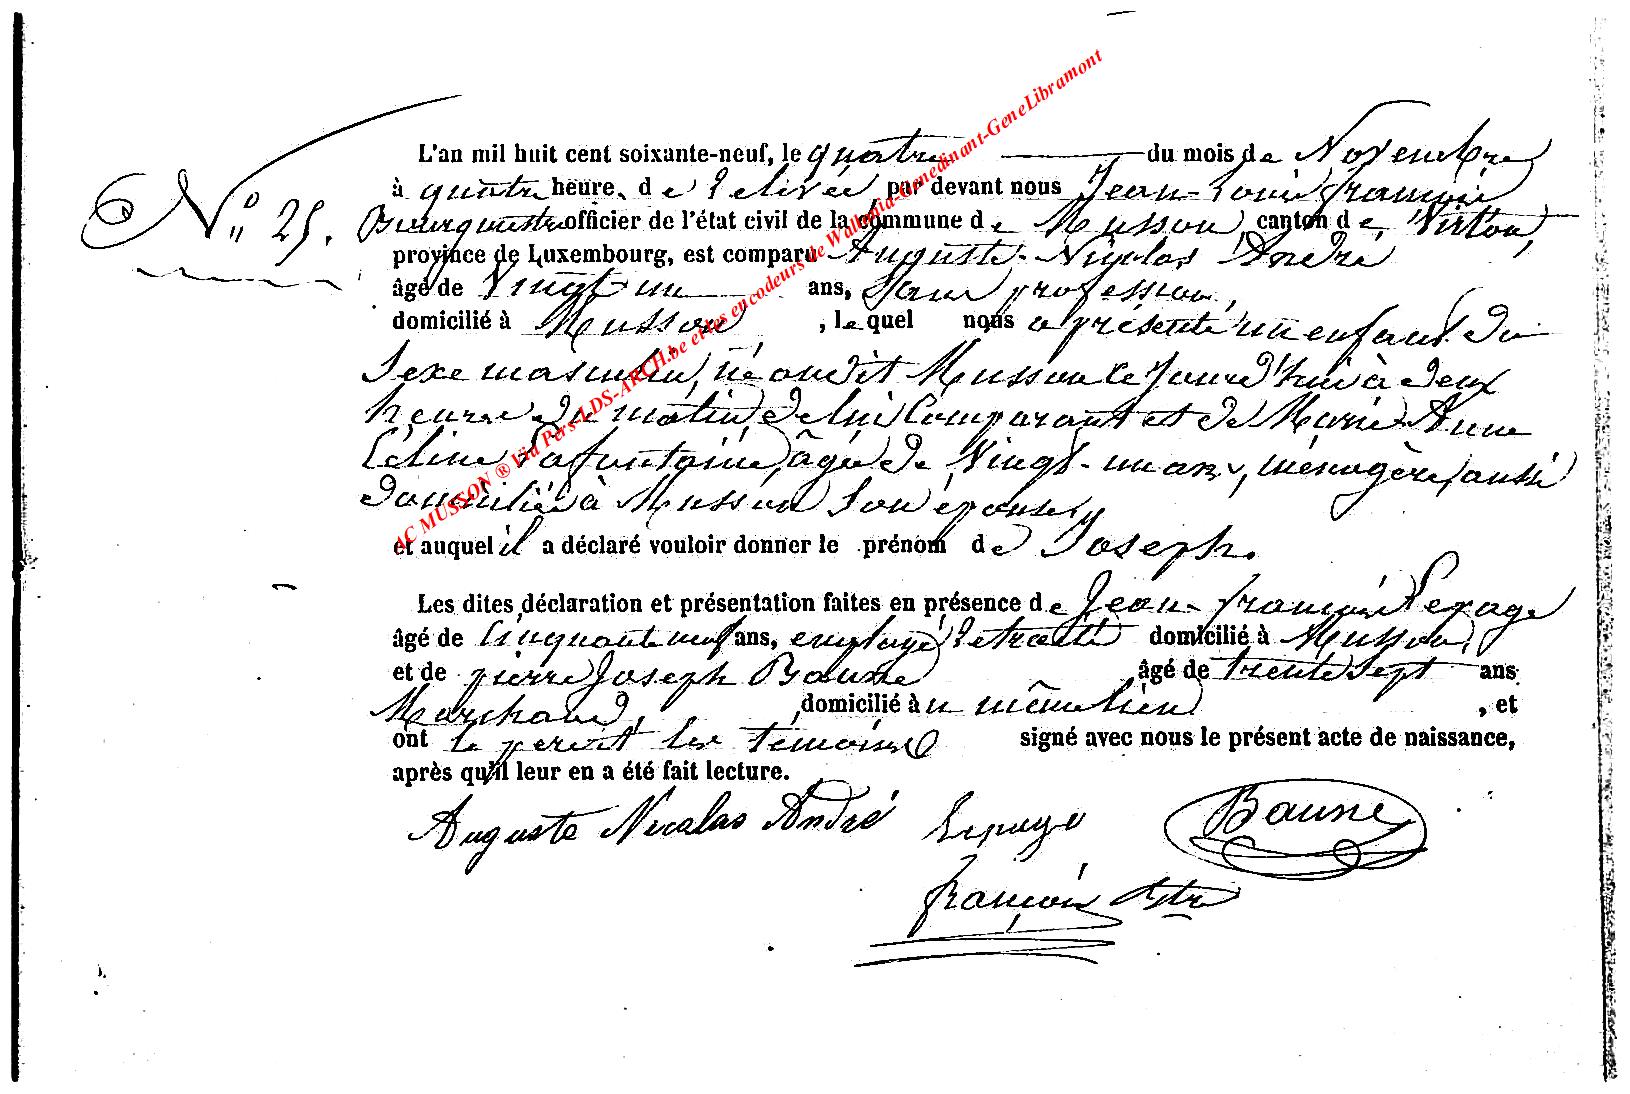 L'an mil huit cent soixante-neuf, le quatre du mois de Novembre
à quatre heure. de relevée par devant nous Jean-Louis françois
N° 25. Bourguemestre officier de l'état civil de la commune de Musson, canton de Virton,
province de Luxembourg, est comparu Auguste-Nicolas André
âgé de Vingt un ans, Sans profession,
domicilié à Musson, lequel nous a présenté un enfant du
Sexe masculin, né audit Musson ce Jourd'hui à deux
heures du matin, de lui Comparant et de Marie-Anne
Céline Lafontaine, âgée de Vingt-un ans, ménagère, aussi
domiciliée à Musson Son épouse,
et auquel il a déclaré vouloir donner le prénom de Joseph.
Les dites déclaration et présentation faites en présence de Jean-françois Lepage
âgé de Cinquante neuf ans, employé retraité domicilié à Musson,
et de pierre Joseph Baune âgé de trente Sept ans
Marchand, domicilié au même lieu, et
ont le père et les témoins signé avec nous le présent acte de naissance,
après qu'il leur en a été fait lecture.
Auguste Nicolas André Lepage Baune
françois
AC MUSSON ® Via Pers-LDS-ARCH.be et les encodeurs de Wallonia-Genedinant-GeneLibramont